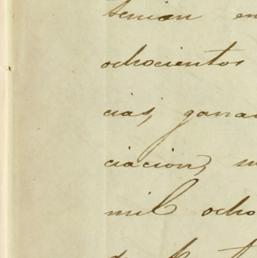 tenian en
ochocientos
cias, gana
ciacion, m
mil ocho